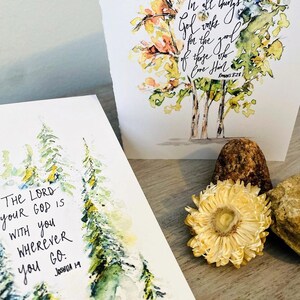 In all things
God works
for the good
of those who
love Him.
ROMANS 8:28
THE LORD
YOUR GOD IS
WITH YOU
WHEREVER
YOU GO.
JOSHUA 1:9